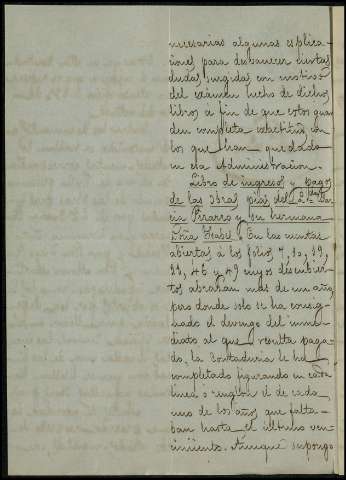 necesarias algunas esplica-
ciones para desbanecer ciertas
dudas surgidas con motivo
del exámen hecho de dichos
libros a fin de que estos guar
den completa exactitud con
los que han quedado
en esa Administracion.
Libro de ingresos y pagos
de las Obras pias del
Pizarro y su hermana
Doña Isabel. En las cuentas
abiertas á los folios 7, 30, 39,
46 y 49 cuyos descubier-
tos abrazan mas de un año,
pero donde solo se ha consig-
nado el devengo del inme-
diato al que resulta paga-
do, la Contaduria le ha
completado figurando en cada
linea o renglon el de cada
uno de los años que falta-
ban hasta el último ven-
cimiento. Aunque supongo